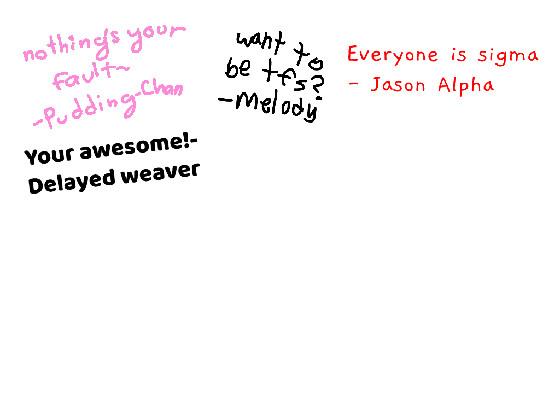 nothing's your
fault~
-Pudding-Chan
want to
be tfs?
-Melody
Everyone is sigma
- Jason Alpha
Your awesome!-
Delayed weaver